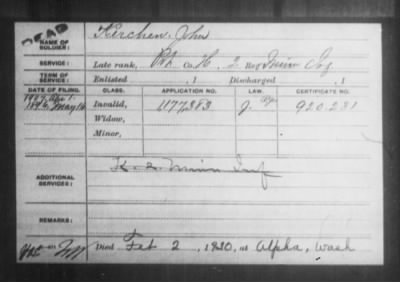 DEAD
NAME OF SOLDIER: Kirchen, John
SERVICE: Late rank, Pvt Co. H, 2 Reg Minn Inf
TERM OF SERVICE: Enlisted , 1 Discharged , 1
DATE OF FILING. CLASS. APPLICATION NO. LAW. CERTIFICATE NO.
1907, Apr 1.
1896, May 16 Invalid, 1177,383 J. 920.231
Widow,
Minor,
ADDITIONAL SERVICES: K. 2. Minn Inf
REMARKS:
Died Feb 2, 1920, at Alpha, Wash